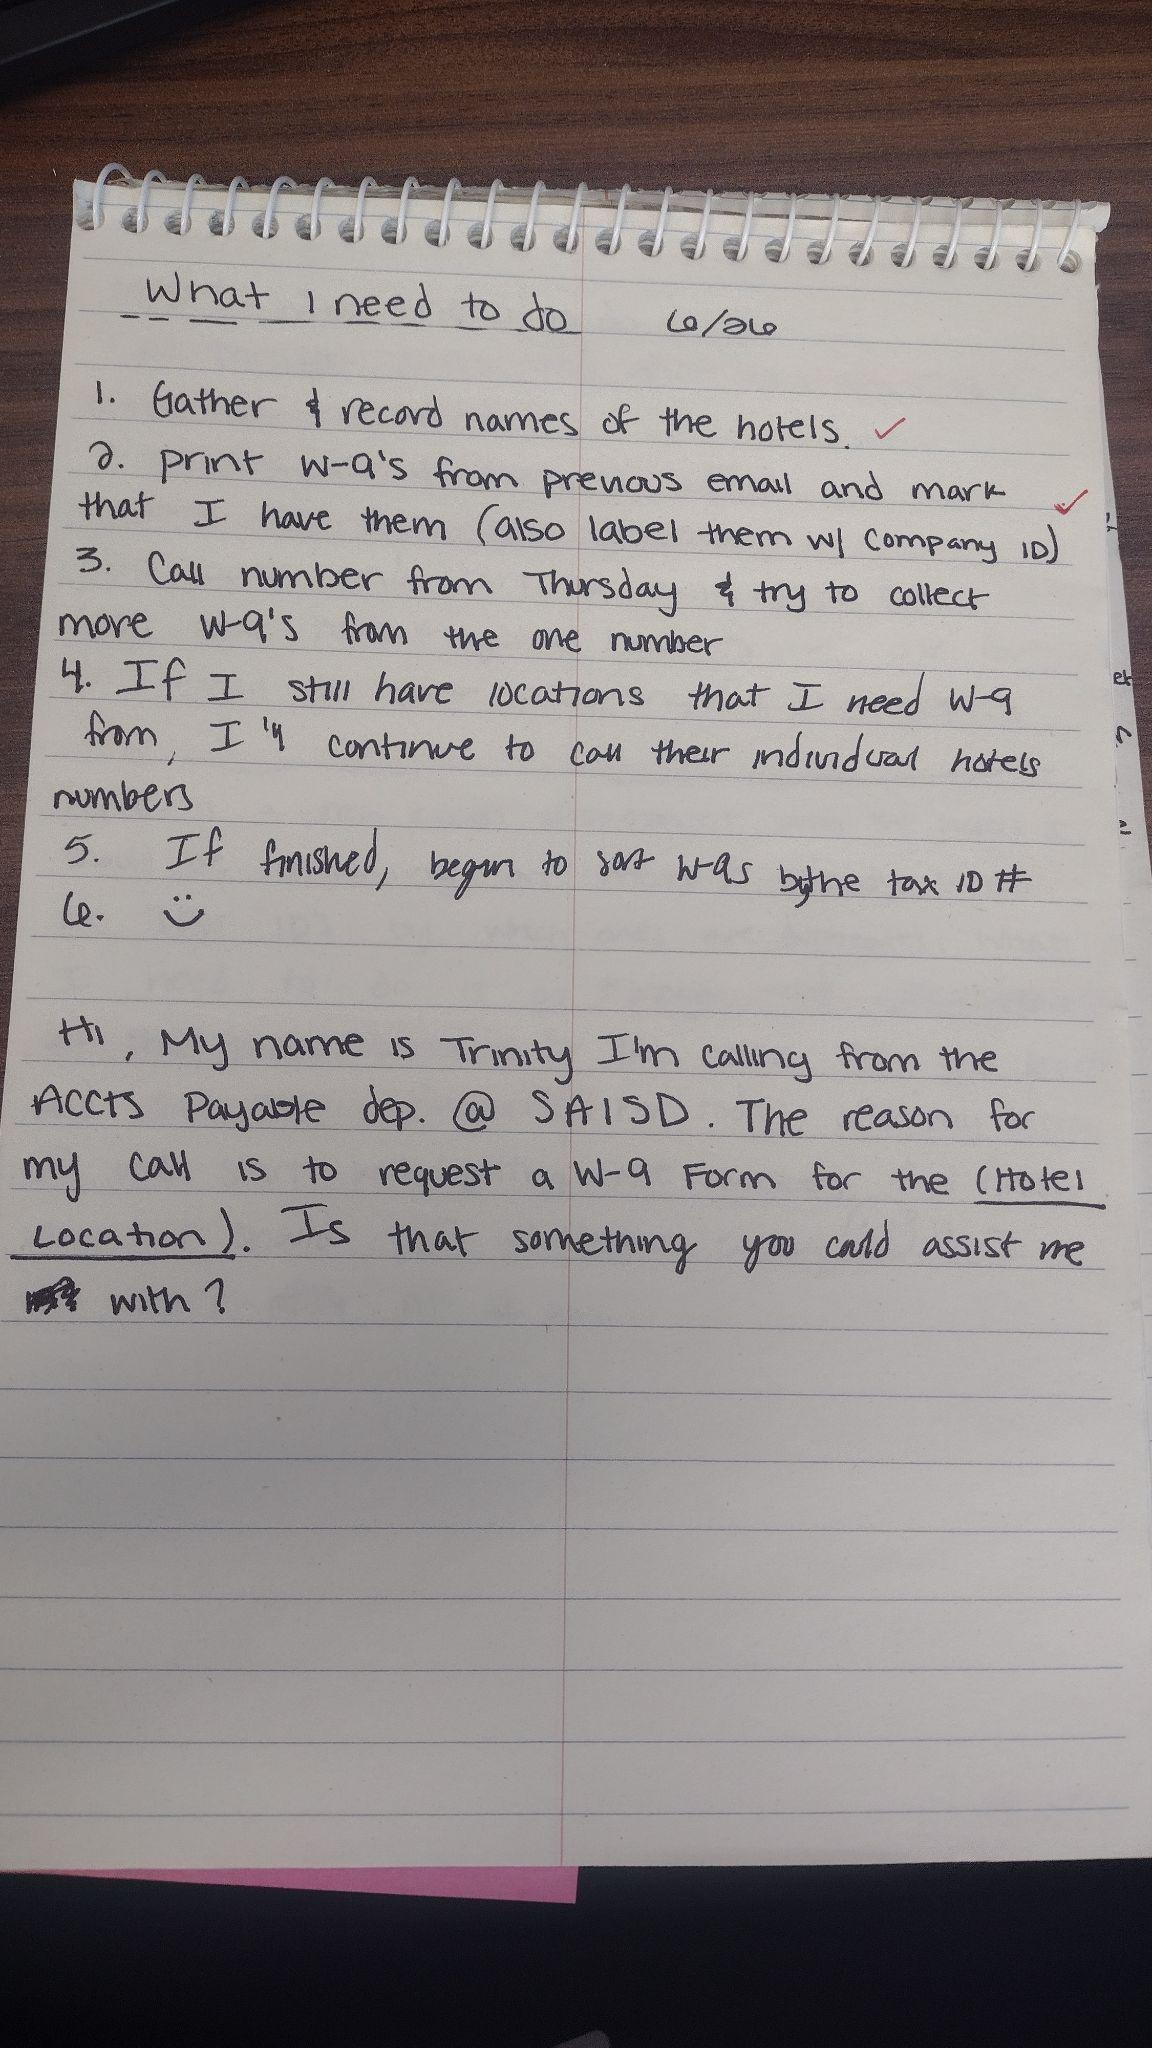 What I need to do 6/26
1. Gather & record names of the hotels. ✓
2. print W-9's from previous email and mark
that I have them (also label them w/ Company ID) ✓
3. Call number from Thursday & try to collect
more W-9's from the one number
4. If I still have locations that I need W-9
from, I'll continue to call their individual hotels
numbers
5. If finished, begin to sort W-9s by the tax ID #
6. :)
Hi, My name is Trinity I'm calling from the
Accts Payable dep. @ SAISD. The reason for
my call is to request a W-9 Form for the (Hotel
Location). Is that something you could assist me
with?